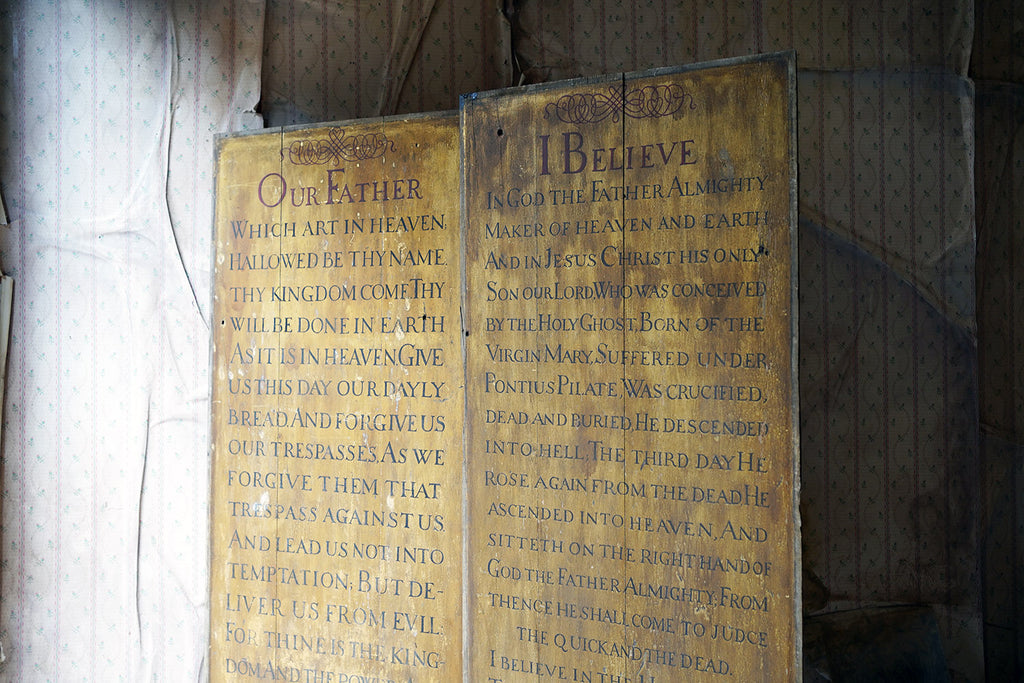 OUR FATHER
WHICH ART IN HEAVEN,
HALLOWED BE THY NAME.
THY KINGDOM COME, THY
WILL BE DONE IN EARTH
AS IT IS IN HEAVEN GIVE
US THIS DAY OUR DAYLY
BREAD. AND FORGIVE US
OUR TRESPASSES, AS WE
FORGIVE THEM THAT
TRESPASS AGAINST US
AND LEAD US NOT INTO
TEMPTATION; BUT DE-
LIVER US FROM EVIL:
FOR THINE IS THE KING-
DOM AND THE POWER
I BELIEVE
IN GOD THE FATHER ALMIGHTY
MAKER OF HEAVEN AND EARTH
AND IN JESUS CHRIST HIS ONLY
SON OUR LORD, WHO WAS CONCEIVED
BY THE HOLY GHOST, BORN OF THE
VIRGIN MARY, SUFFERED UNDER,
PONTIUS PILATE, WAS CRUCIFIED,
DEAD AND BURIED, HE DESCENDED
INTO HELL, THE THIRD DAY HE
ROSE AGAIN FROM THE DEAD, HE
ASCENDED INTO HEAVEN, AND
SITTETH ON THE RIGHT HAND OF
GOD THE FATHER ALMIGHTY, FROM
THENCE HE SHALL COME TO JUDGE
THE QUICK AND THE DEAD.
I BELIEVE IN THE